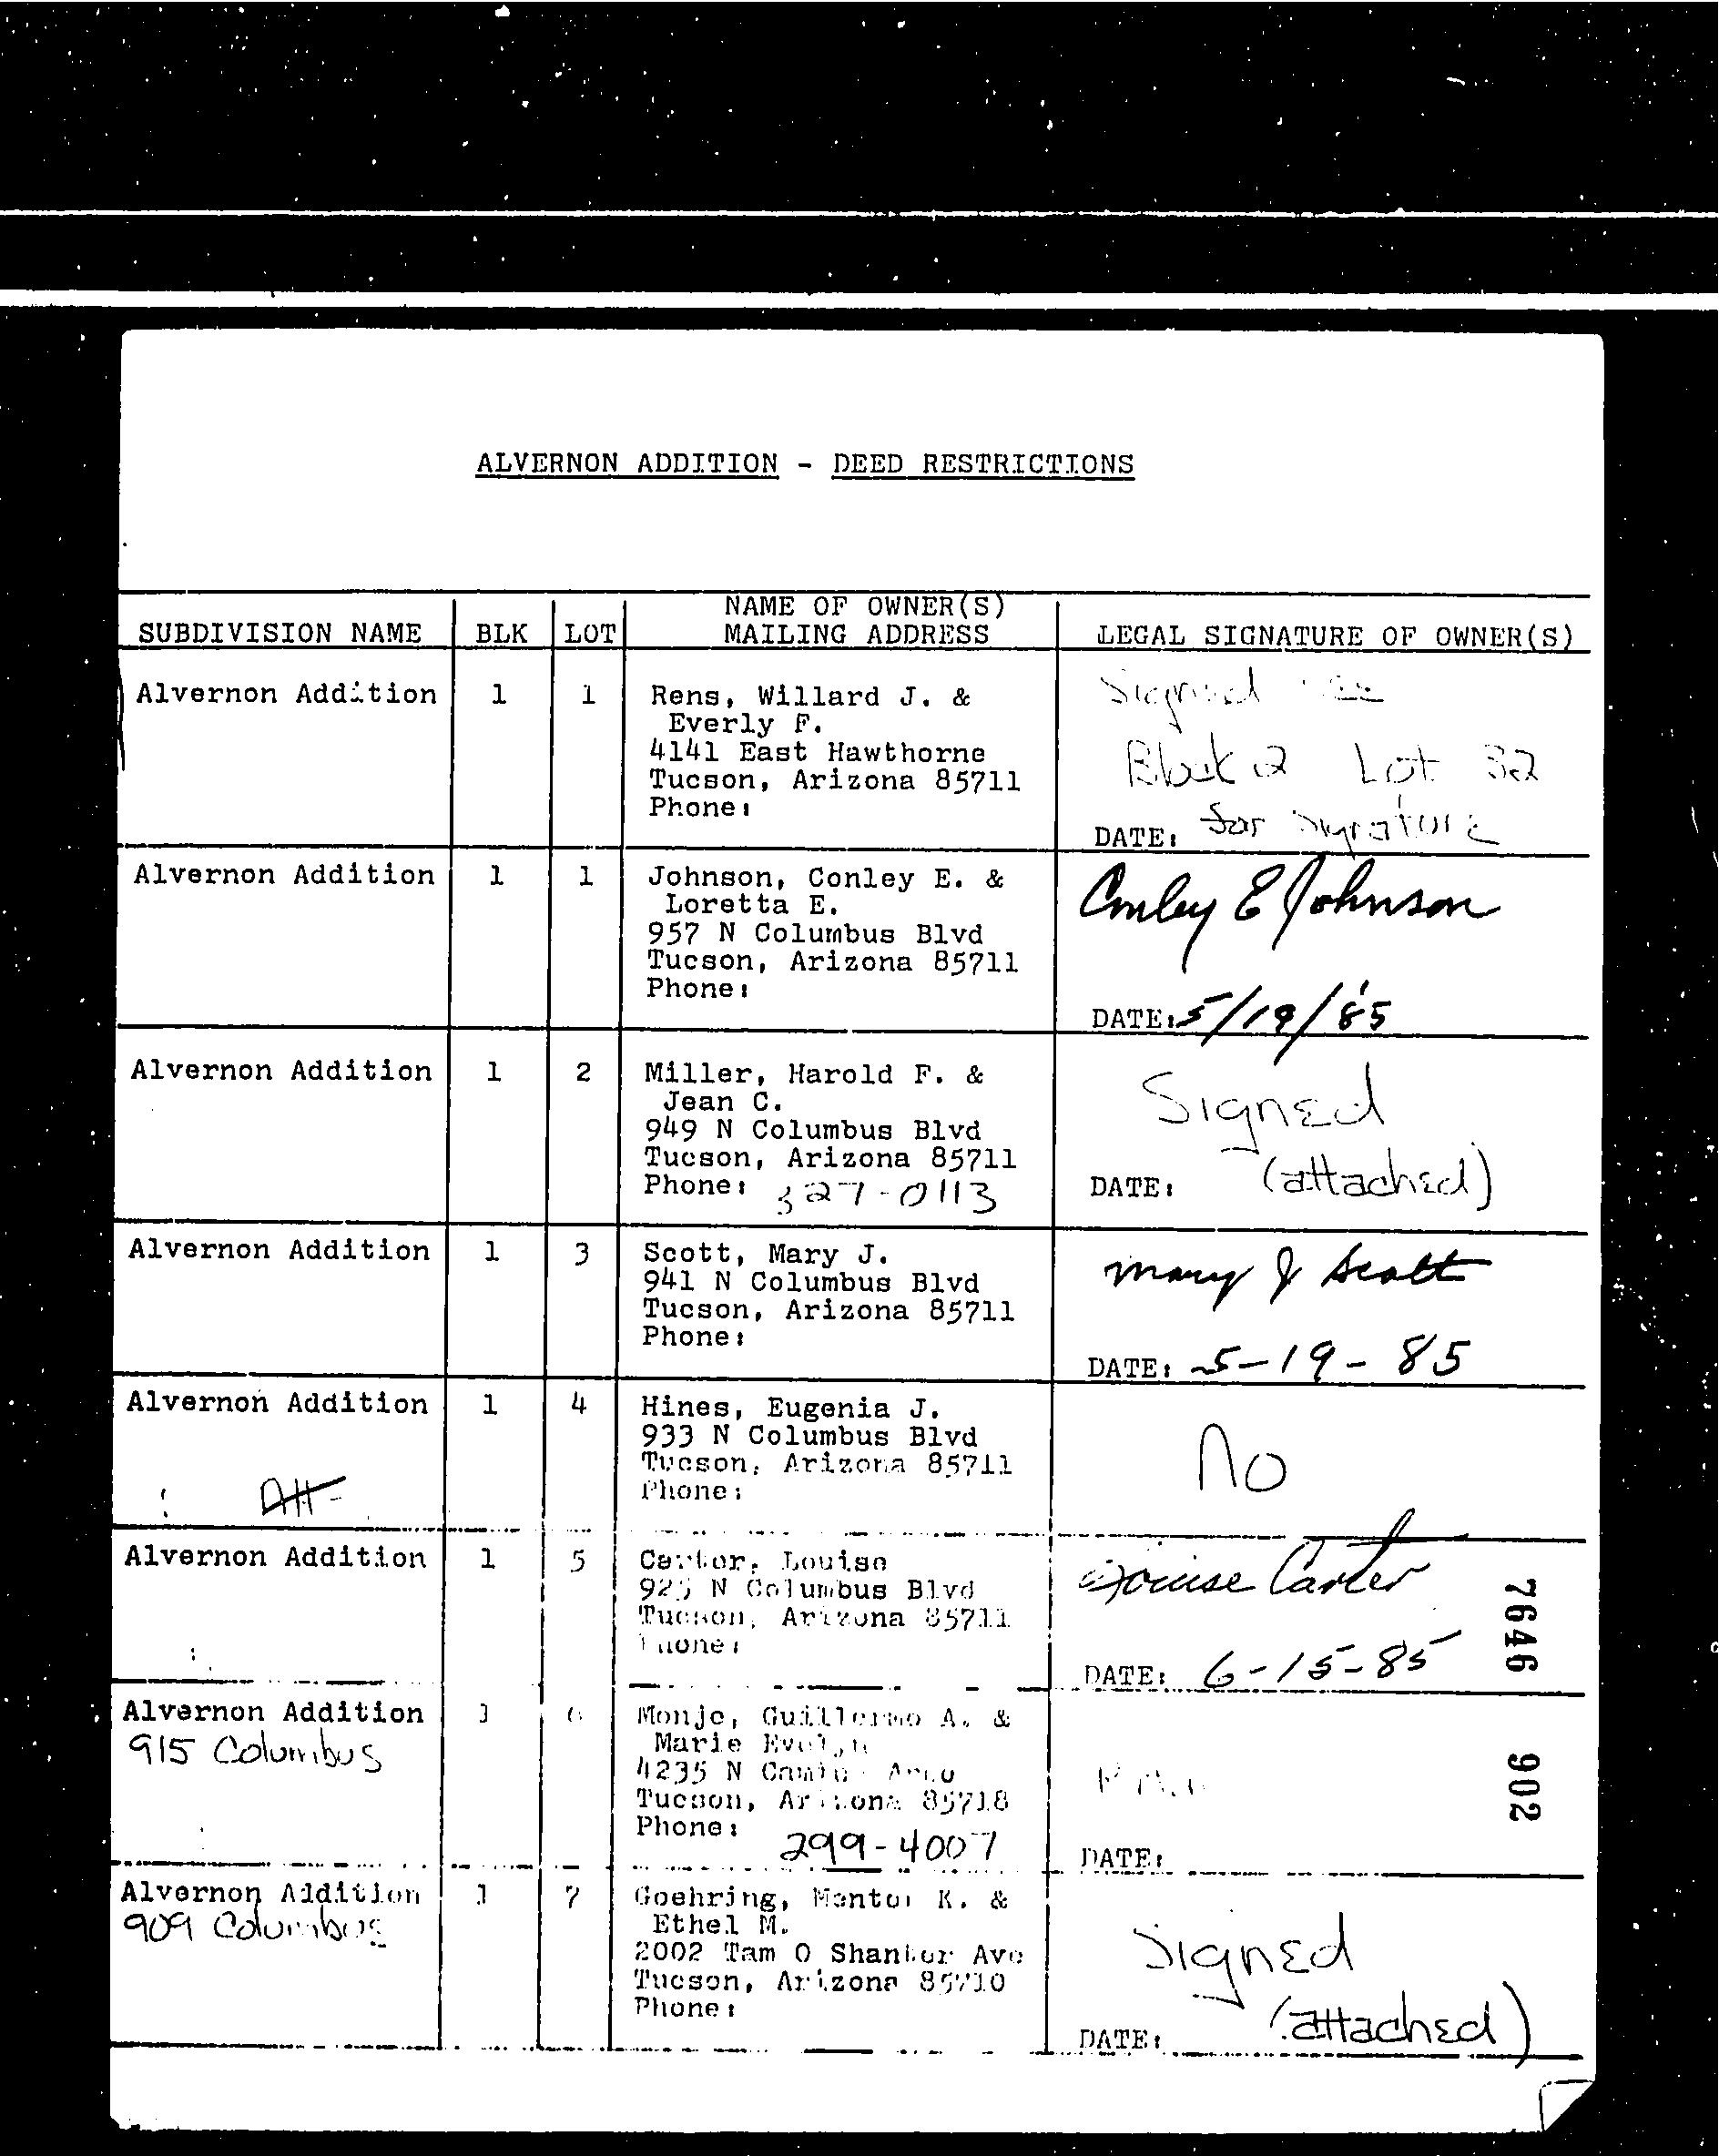 ALVERNON ADDITION - DEED RESTRICTIONS
SUBDIVISION NAME BLK LOT NAME OF OWNER(S) MAILING ADDRESS LEGAL SIGNATURE OF OWNER(S)
Alvernon Addition 1 1 Rens, Willard J. & Signed
Everly F.
4141 East Hawthorne Block 2 Lot 32
Tucson, Arizona 85711
Phone: for signature
DATE:
Alvernon Addition 1 1 Johnson, Conley E. & Conley E Johnson
Loretta E.
957 N Columbus Blvd
Tucson, Arizona 85711
Phone:
DATE: 5/19/'85
Alvernon Addition 1 2 Miller, Harold F. & Signed
Jean C.
949 N Columbus Blvd
Tucson, Arizona 85711
Phone: 327-0113 DATE: (attached)
Alvernon Addition 1 3 Scott, Mary J. Mary J Scott
941 N Columbus Blvd
Tucson, Arizona 85711
Phone:
DATE: 5-19-85
Alvernon Addition 1 4 Hines, Eugenia J.
933 N Columbus Blvd No
Tucson, Arizona 85711
Phone:
Alvernon Addition 1 5 Carter, Louise Louise Carter
N Columbus Blvd
Tucson, Arizona 85711
Phone:
DATE: 6-15-85
7646 902
Alvernon Addition 1 6 Monje, Guillermo A. &
915 Columbus Marie Evelyn
4235 N
Tucson, Arizona 85718
Phone: 299-4007
DATE:
Alvernon Addition 1 7 Goehring, K. &
909 Columbus Ethel M. Signed
2002 Tam O Shanter Ave
Tucson, Arizona 85710
Phone: (attached)
DATE: